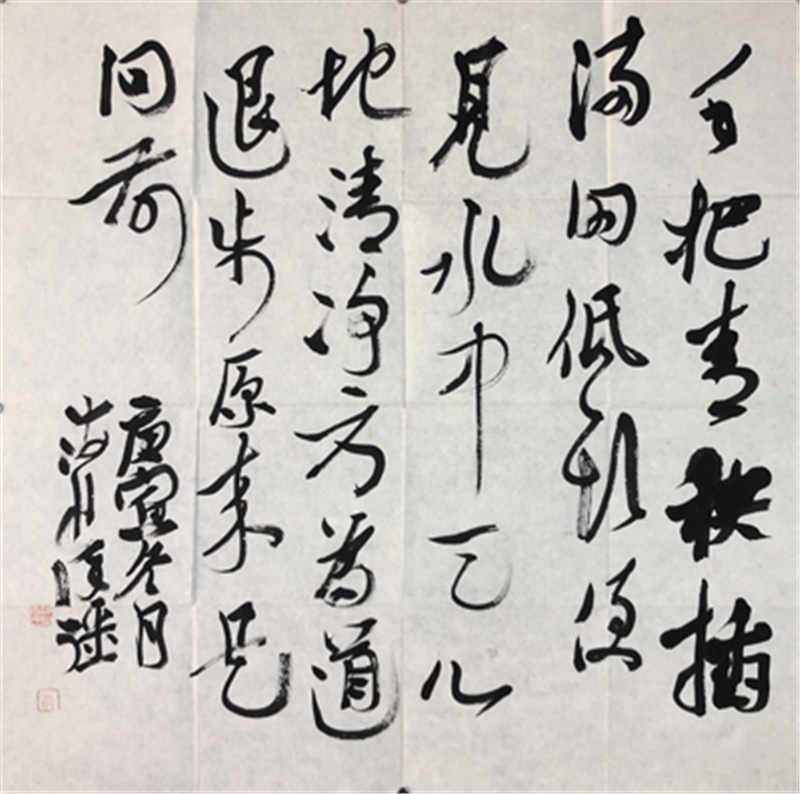 手把青秧插
满田低头便
見水中天心
地清净方為道
退步原来是
向前
庚寅冬月